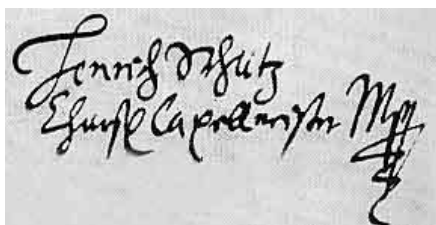 Henrich Schütz
Churf Capellmeister Mpp